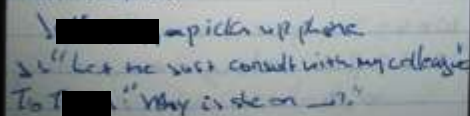 - picks up phone
"Let me just consult with my colleague
To T "Why is she on